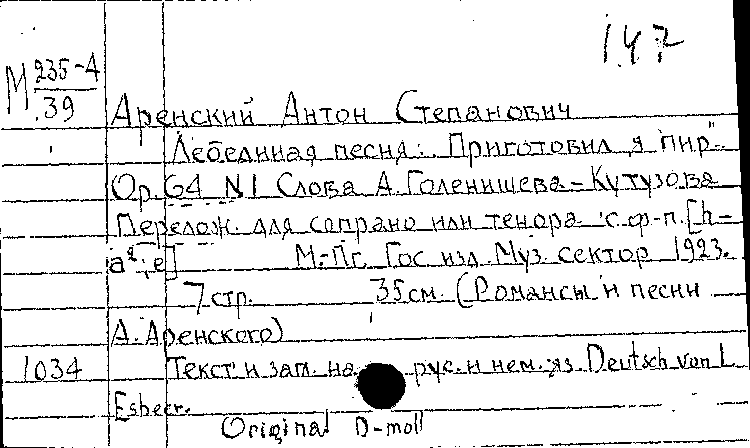 147
М 235-4
39
Аренский Антон Степанович
Лебединая песня: „Приготовил я пир".
Op. 64 N 1 Слова А. Голенищева-Кутузова
Перелож. для сопрано или тенора с ф-п. [h-
a²; e] М.-Пг. Гос изд. Муз. сектор 1923.
7 стр. 35 см. (Романсы и песни
А. Аренского)
1034 Текст и заг. на рус. и нем. яз. Deutsch von L.
Esbeer.
Original D-moll